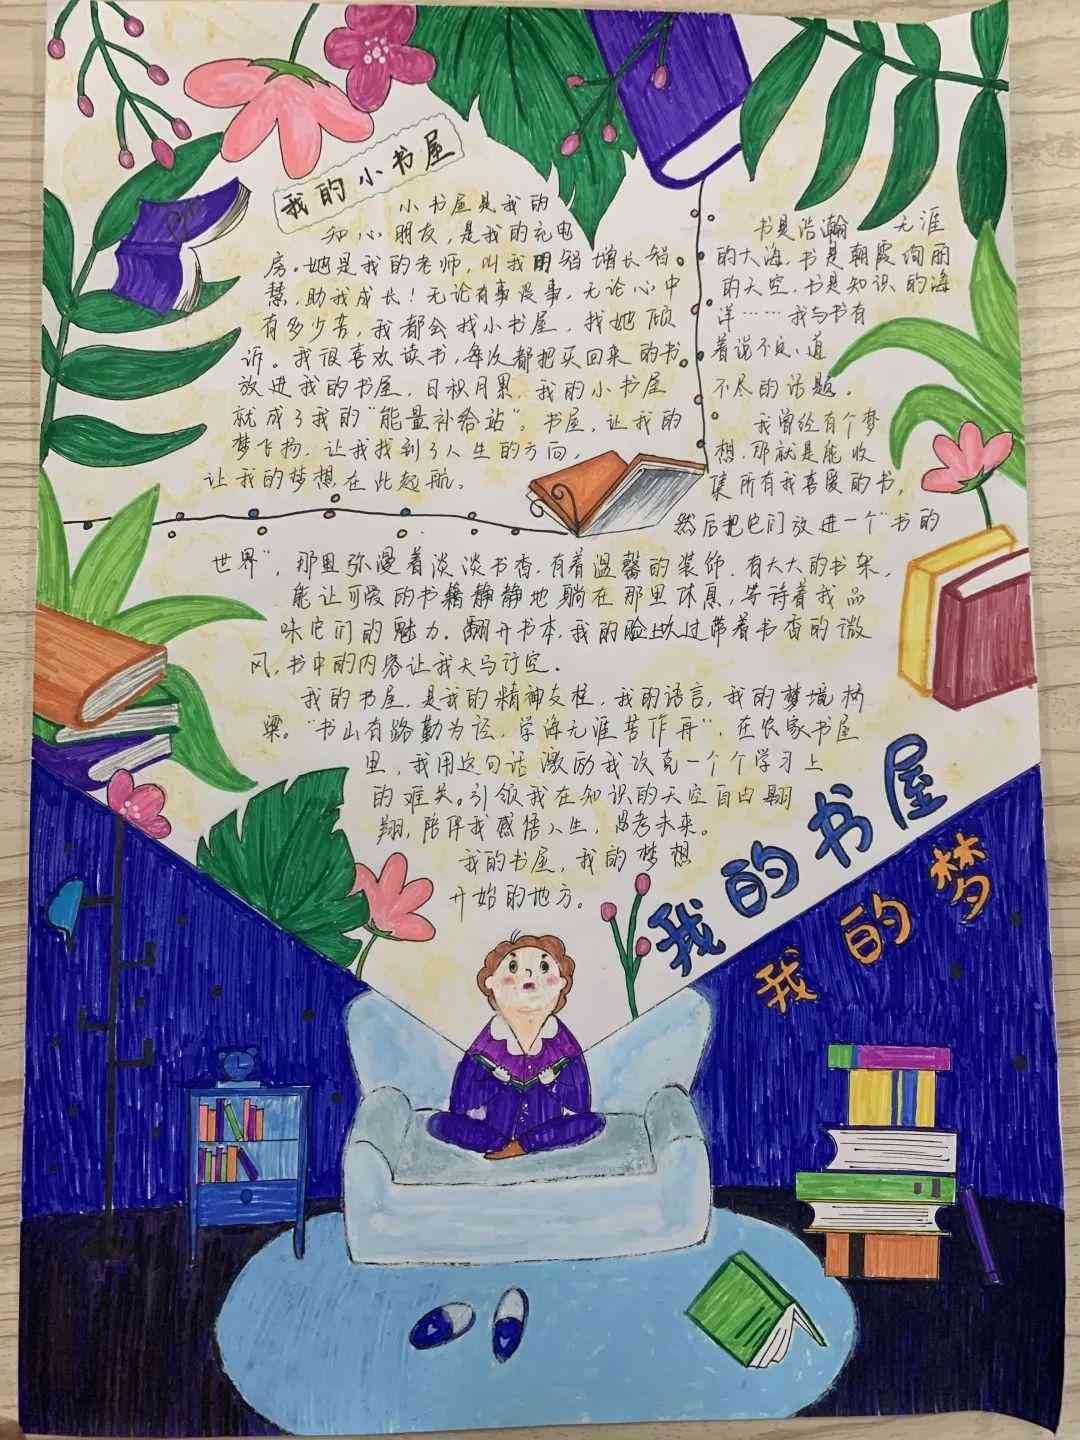 我的小书屋
小书屋是我的
知心朋友，是我的充电
房。她是我的老师，叫我用智增长智
慧，助我成长！无论有事没事，无论心中
有多少苦，我都会找小书屋，找她倾
诉。我很喜欢读书，每次都把买回来的书
放进我的书屋，日积月累，我的小书屋
就成了我的"能量补给站"。书屋，让我的
梦飞扬，让我找到了人生的方向，
让我的梦想在此起航。
书是浩瀚无涯
的大海，书是朝霞绚丽
的天空，书是知识的海
洋……我与书有
着说不完、道
不尽的话题。
我曾经有个梦
想，那就是能收
集所有我喜爱的书，
然后把它们放进一个"书的
世界"，那里弥漫着淡淡书香，有着温馨的装饰，有大大的书架，
能让可爱的书籍静静地躺在那里休息，等待着我品
味它们的魅力。翻开书本，我的脸上吹过带着书香的微
风，书中的内容让我天马行空。
我的书屋，是我的精神支柱，我的语言，我的梦境桥
梁。"书山有路勤为径，学海无涯苦作舟"，在农家书屋
里，我用这句话激励我攻克一个个学习上
的难关。引领我在知识的天空自由翱
翔，陪伴我感悟人生，思考未来。
我的书屋，我的梦想
开始的地方。
我的书屋
我的梦